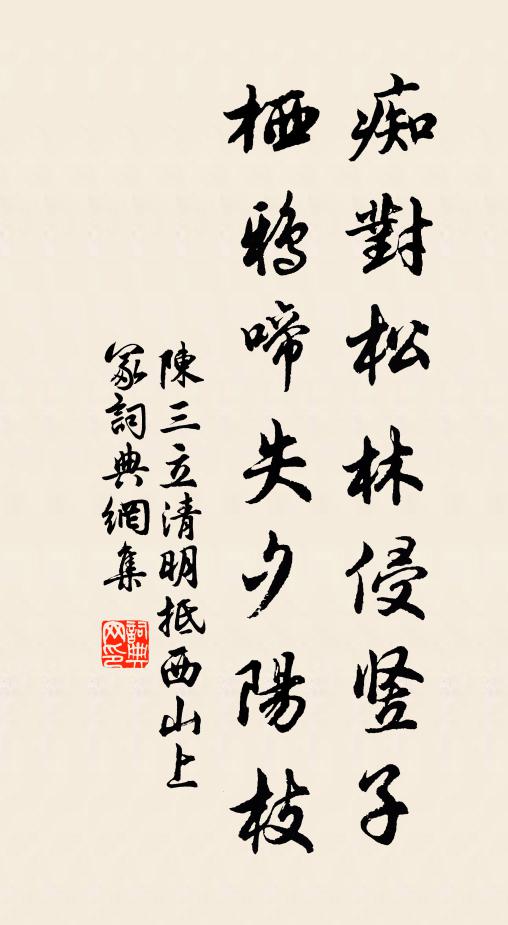 痴對松林侵竪子
栖鴉啼失夕陽枝
陳三立清明抵西山上
冢詞典網集
詞典網印